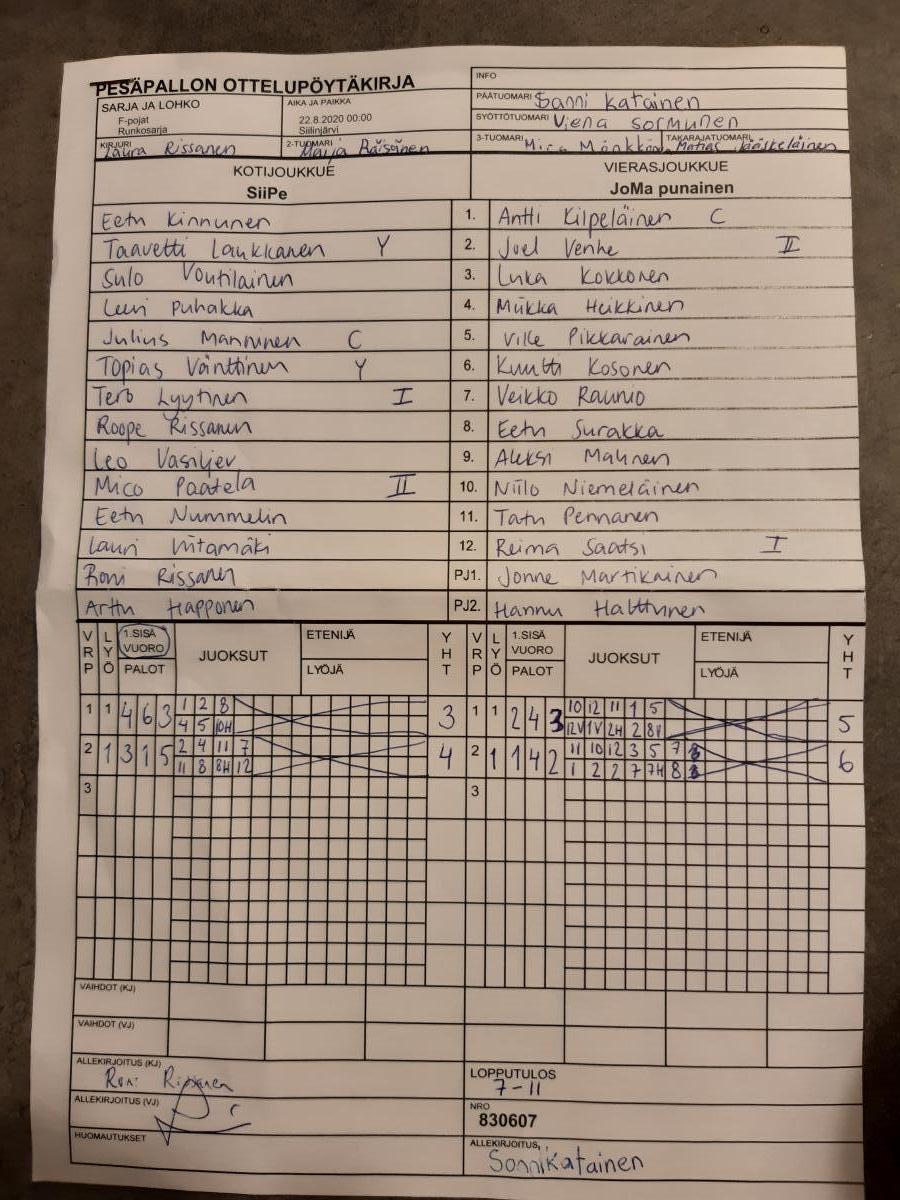 PESÄPALLON OTTELUPÖYTÄKIRJA
INFO
SARJA JA LOHKO
F-pojat
Runkosarja
AIKA JA PAIKKA
22.8.2020 00:00
Siilinjärvi
PÄÄTUOMARI Sanni Katainen
SYÖTTÖTUOMARI Viena Sormunen
KIRJURI Laura Rissanen
2-TUOMARI Maija Räisänen
3-TUOMARI Mira Mönkkönen
TAKARAJATUOMARI Matias Jääskeläinen
KOTIJOUKKUE
SiiPe
VIERASJOUKKUE
JoMa punainen
Eetu Kinnunen 1. Antti Kilpeläinen C
Taavetti Laukkanen Y 2. Joel Venhe II
Sulo Voutilainen 3. Luka Kokkonen
Leevi Puhakka 4. Miikka Heikkinen
Julius Manninen C 5. Ville Pikkarainen
Topias Väinttinen Y 6. Kuutti Kosonen
Tero Lyytinen I 7. Veikko Raunio
Roope Rissanen 8. Eetu Surakka
Leo Vasiljev 9. Aleksi Malinen
Mico Paatela II 10. Niilo Niemeläinen
Eetu Nummelin 11. Tatu Pennanen
Lauri Viitamäki 12. Reima Saatsi I
Roni Rissanen PJ1. Jonne Martikainen
Arttu Happonen PJ2. Hannu Halttunen
VRP LYÖ 1.SISÄ VUORO PALOT JUOKSUT ETENIJÄ LYÖJÄ YHT VRP LYÖ 1.SISÄ VUORO PALOT JUOKSUT ETENIJÄ LYÖJÄ YHT
1 1 4 6 3 1 2 8 3 1 1 2 4 3 10 12 11 1 5 5
4 5 10H 12V 1V 2H 2 8V
2 1 3 1 5 2 4 11 7 4 2 1 1 4 2 11 10 12 3 5 7 6
11 8 8H 12 1 2 2 7 7H 8
3 3
VAIHDOT (KJ)
VAIHDOT (VJ)
ALLEKIRJOITUS (KJ)
Roni Rissanen
ALLEKIRJOITUS (VJ)
HUOMAUTUKSET
LOPPUTULOS
7-11
NRO
830607
ALLEKIRJOITUS,
Sanni Katainen